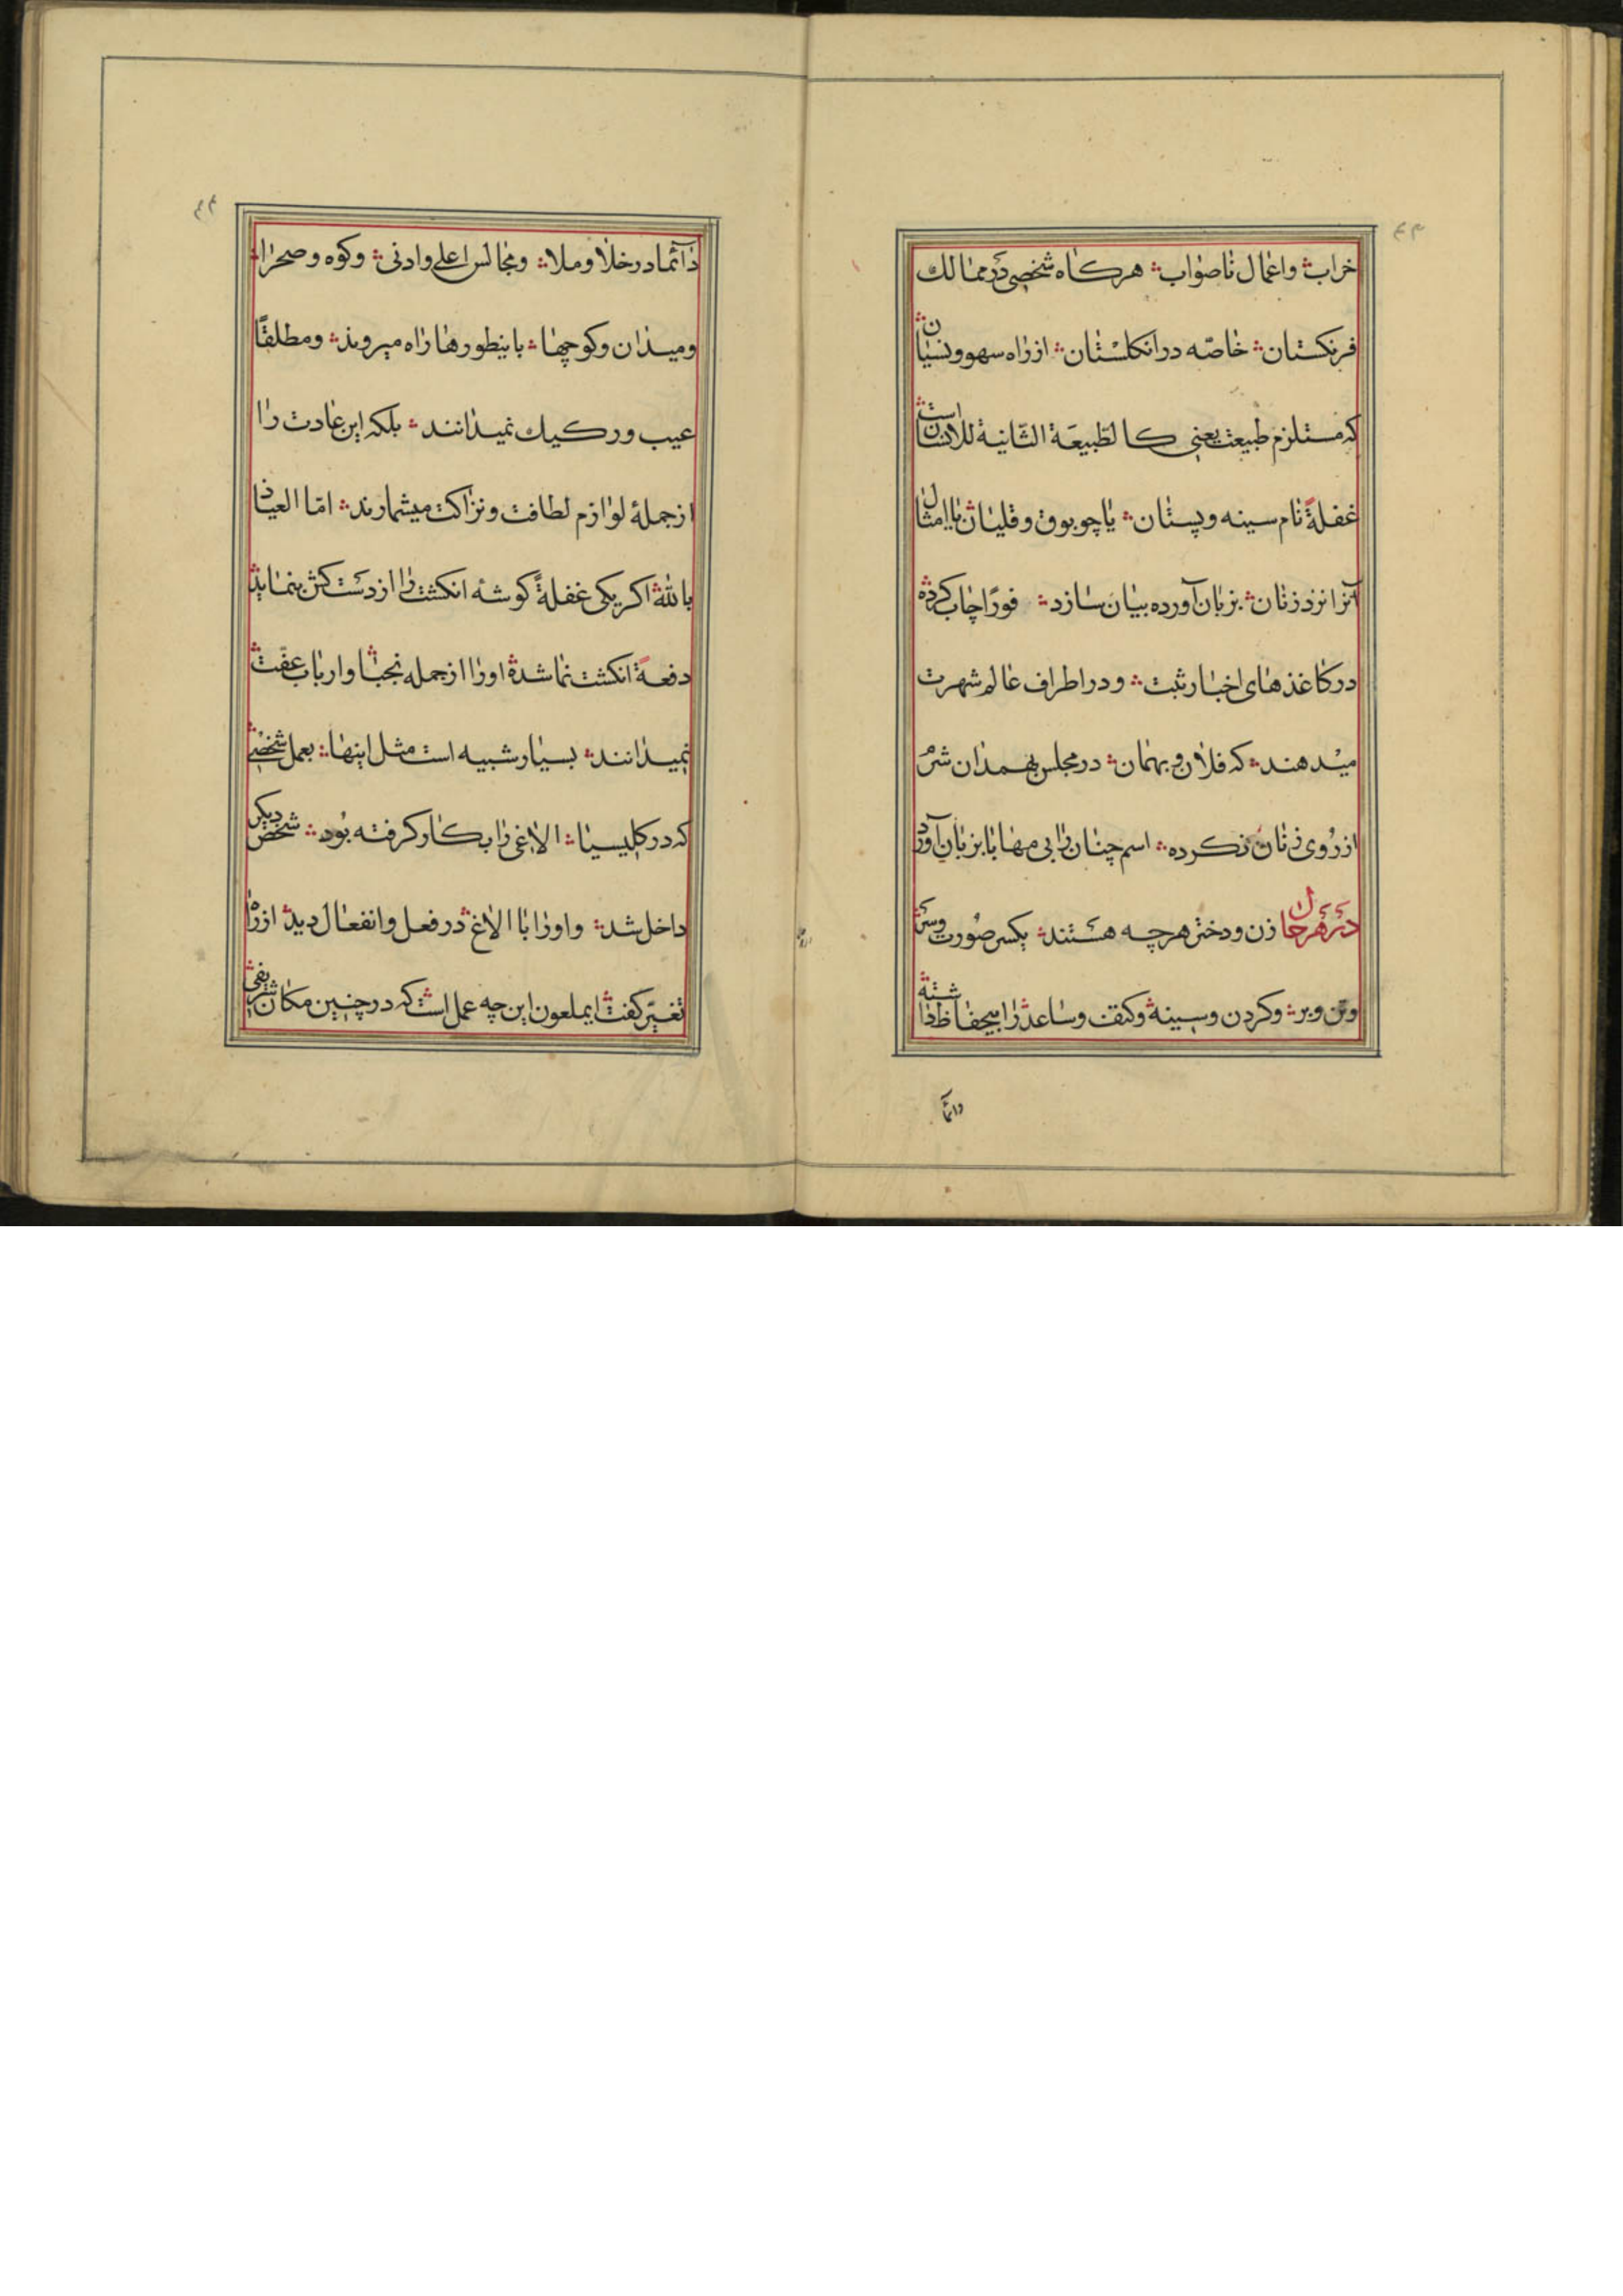 ۴۳
خراب؞ واعمال ناصواب؞ هرکاه شخصی در ممالک
فرنکستان؞ خاصّه در انکلستان؞ از راه سهو و نسیان؞
که مستلزم طبیعت یعنی کالطّبیعة الثّانیة للانسان است؞
غفلةً نام سینه و پستان؞ یا چوبوق و قلیان؞ یا امثال
آنرا نزد زنان؞ بزبان آورده بیان سازد؞ فورًا چاپ کرده؞
در کاغذهای اخبار ثبت؞ و در اطراف عالم شهرت
میدهند؞ که فلان و بهمان؞ در مجلس بهمدان شرم
از روی زنان نکرده؞ اسم چنان را بی مهابا بزبان آورد
در هر حال زن و دختر هرچه هستند؞ یکسر صورت و سر؞
و تن و بر؞ و کردن و سینه؞ و کتف و ساعد؞ را بیحفاظ داشته؞
دائما
۴۴
دآئما در خلا و ملا؞ و مجالس اعلی و ادنی؞ و کوه و صحرا؞
و میدان و کوچها؞ باینطورها راه میروند؞ و مطلقًا
عیب و رکیک نمیدانند؞ بلکه این عادت را
از جملهٔ لوازم لطافت و نزاکت میشمارند؞ امّا العیاذ
بالله؞ اکر یکی غفلةً کوشهٔ انکشت را از دستکش بنماید؞
دفعةً انکشت نما شده؞ او را از جمله نجبا؞ و ارباب عفّت؞
نمیدانند؞ بسیار شبیه است مثل اینها؞ بعمل شخصی؞
که در کلیسیا؞ الاغی را بکار کرفته بود؞ شخص دیکر
داخل شد؞ و او را با الاغ؞ در فعل و انفعال دید؞ از راه
تغیّر کفت؞ ایملعون این چه عمل است؞ که در چنین مکان شریفی؞